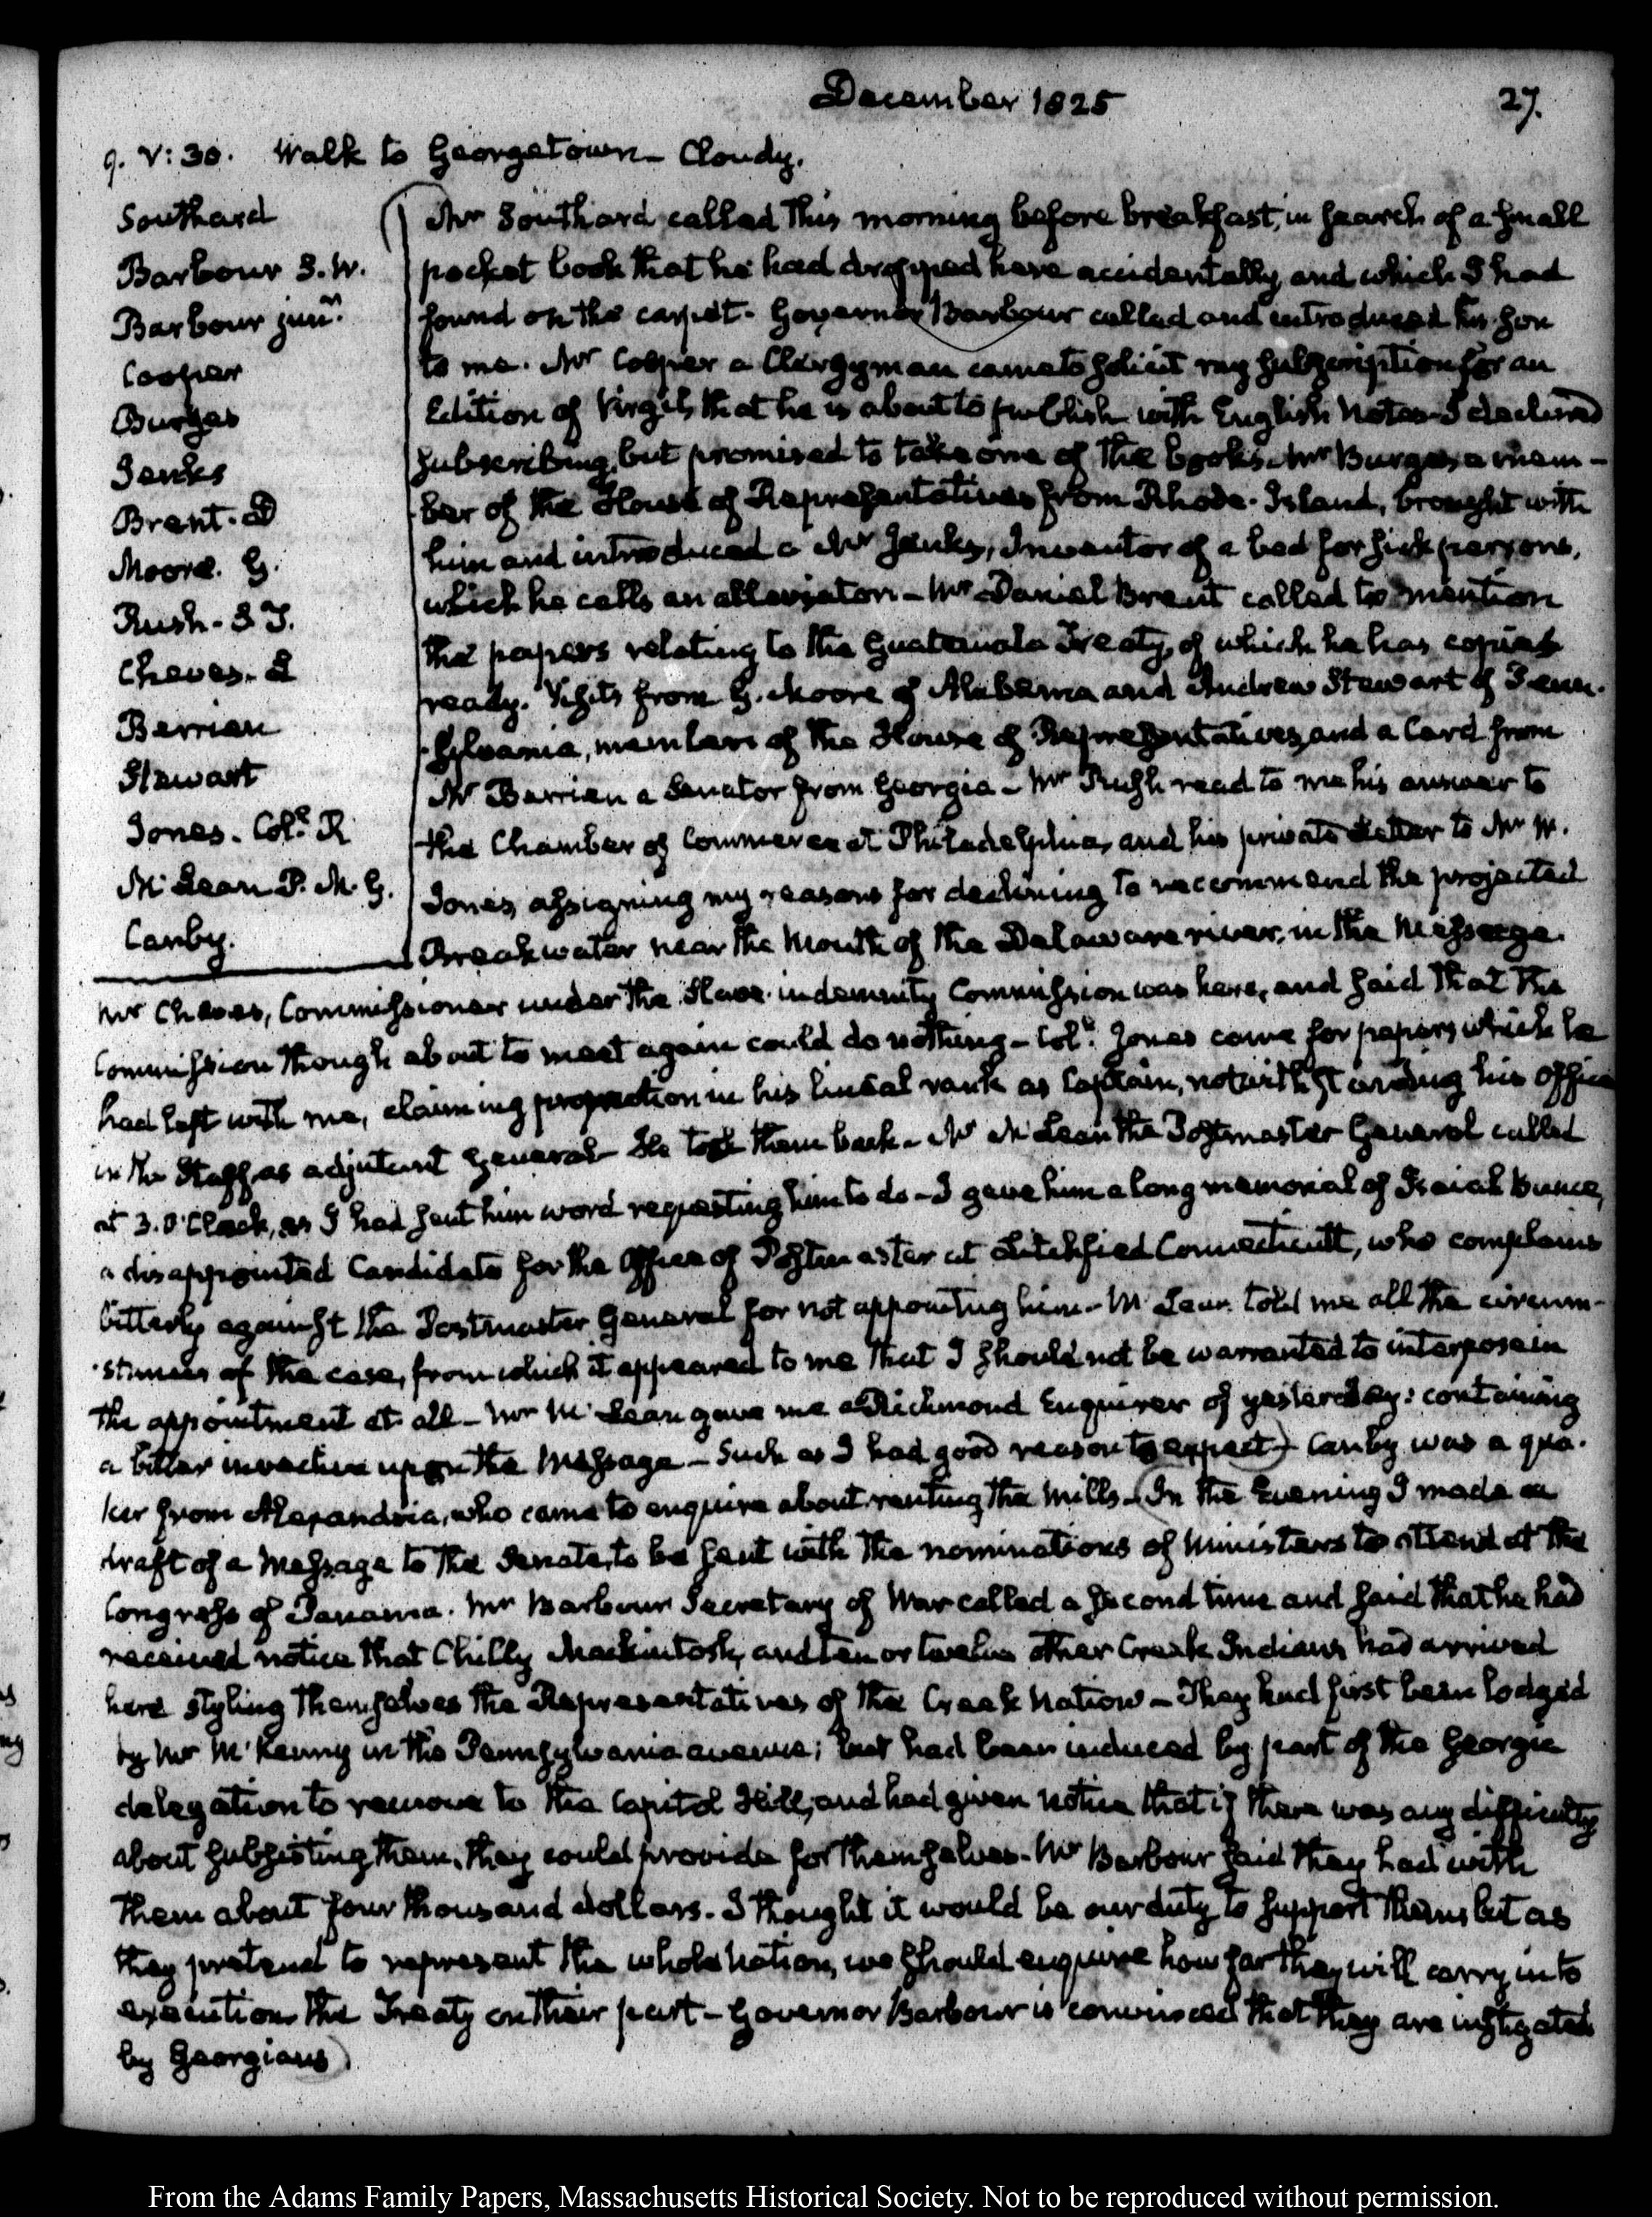 December 1825
27.
9. V:30. Walk to Georgetown– Cloudy.
Southard
Barbour S. W.
Barbour junr.
Cooper
Burges
Jenks
Brent. D
Moore. G.
Rush– S T.
Cheves. L
Berrien
Stewart
Jones. Coll. R
McLean P. M. G.
Canby.
Mr Southard called this morning before breakfast, in search of a small
pocket book that he had dropped here accidentally and which I had
found on the carpet. Governor Barbour called and introduced his son
to me. Mr Cooper a Clergyman came to solicit my subscription for an
Edition of Virgil, that he is about to publish with English Notes– I declined
subscribing, but promised to take one of the books. Mr Burges, a mem-
ber of the House of Representatives from Rhode-Island, brought with
him and introduced a Mr Jenks, Inventor of a bed for sick persons,
which he calls an alleviator– Mr Daniel Brent called to mention
the papers relating to the Guatemala Treaty, of which he has copies
ready. Visits from G. Moore of Alabama and Andrew Stewart of Penn-
-sylvania, members of the House of Representatives, and a Card from
Mr Berrien a Senator from Georgia– Mr Rush read to me his answer to
the Chamber of Commerce at Philadelphia, and his private Letter to Mr W.
Jones, assigning my reasons for declining to recommend the projected
Breakwater near the Mouth of the Delaware river, in the Message.
Mr Cheves, Commissioner under the Slave-indemnity Commission was here, and said that the
Commission though about to meet again could do nothing– Coll. Jones came for papers which he
had left with me, claiming promotion in his lineal rank as Captain, notwithstanding his Office
in the Staff, as adjutant General– He took them back– Mr McLean the Postmaster General called
at 3. O'Clock, as I had sent him word requesting him to do– I gave him a long memorial of Isaiah Bunce,
a disappointed Candidate for the Office of Postmaster at Litchfied Connecticutt, who complains
bitterly against the Postmaster General for not appointing him– McLean told me all the circum-
-stances of the case, from which it appeared to me that I should not be warranted to interpose in
the appointment at all– Mr McLean gave me a Richmond Enquirer of yesterday: containing
a bitter invective upon the Message– Such as I had good reason to expect) Canby was a qua-
ker from Alexandria, who came to enquire about renting the Mills– (In the Evening I made a
draft of a Message to the Senate, to be sent with the nominations of Ministers to attend at the
Congress of Panama. Mr Barbour Secretary of War called a second time and said that he had
received notice that Chilly Mackintosh, and ten or twelve other Creek Indians had arrived
here styling themselves the Representatives of the Creek Nation– They had first been lodged
by Mr McKenny in the Pennsylvania avenue; but had been induced by part of the Georgia
delegation to remove to the Capitol Hill, and had given notice that if there was any difficulty
about subsisting them, they could provide for themselves– Mr Barbour said they had with
them about four thousand dollars. I thought it would be our duty to support them; but as
they pretend to represent the whole Nation, we should enquire how far they will carry into
execution the Treaty on their part– Governor Barbour is convinced that they are instigated
by Georgians)
From the Adams Family Papers, Massachusetts Historical Society. Not to be reproduced without permission.